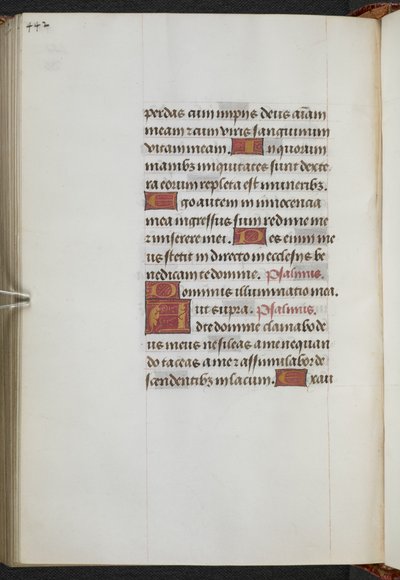 442
perdas cum impiis deus aīam
meam ⁊ cum viris sanguinum
vitam meam. In quorum
manibꝫ iniquitates sunt dexte
ra eorum repleta est muneribꝫ.
Ego autem in innocencia
mea ingressus sum redime me
⁊ miserere mei. Pes enim me
us stetit in directo in ecclesiis be
nedicam te domine. Psalmus.
Dominus illuminatio mea.
ut supra. Psalmus.
Ad te domine clamabo de
us meus ne sileas a me nequan
do taceas a me ⁊ assimilabor de
scendentibꝫ in lacum. Exau